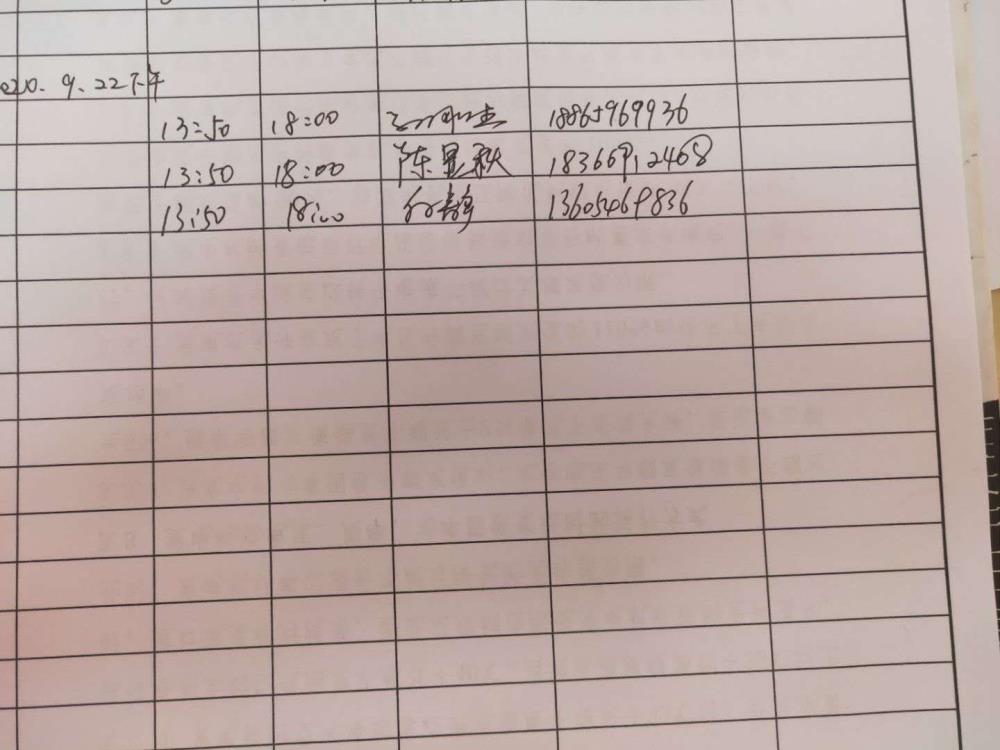 2020.9.22下午
13:50 18:00 18865969936
13:50 18:00 陈显秋 18366912468
13:50 18:00 孙静 13605469836